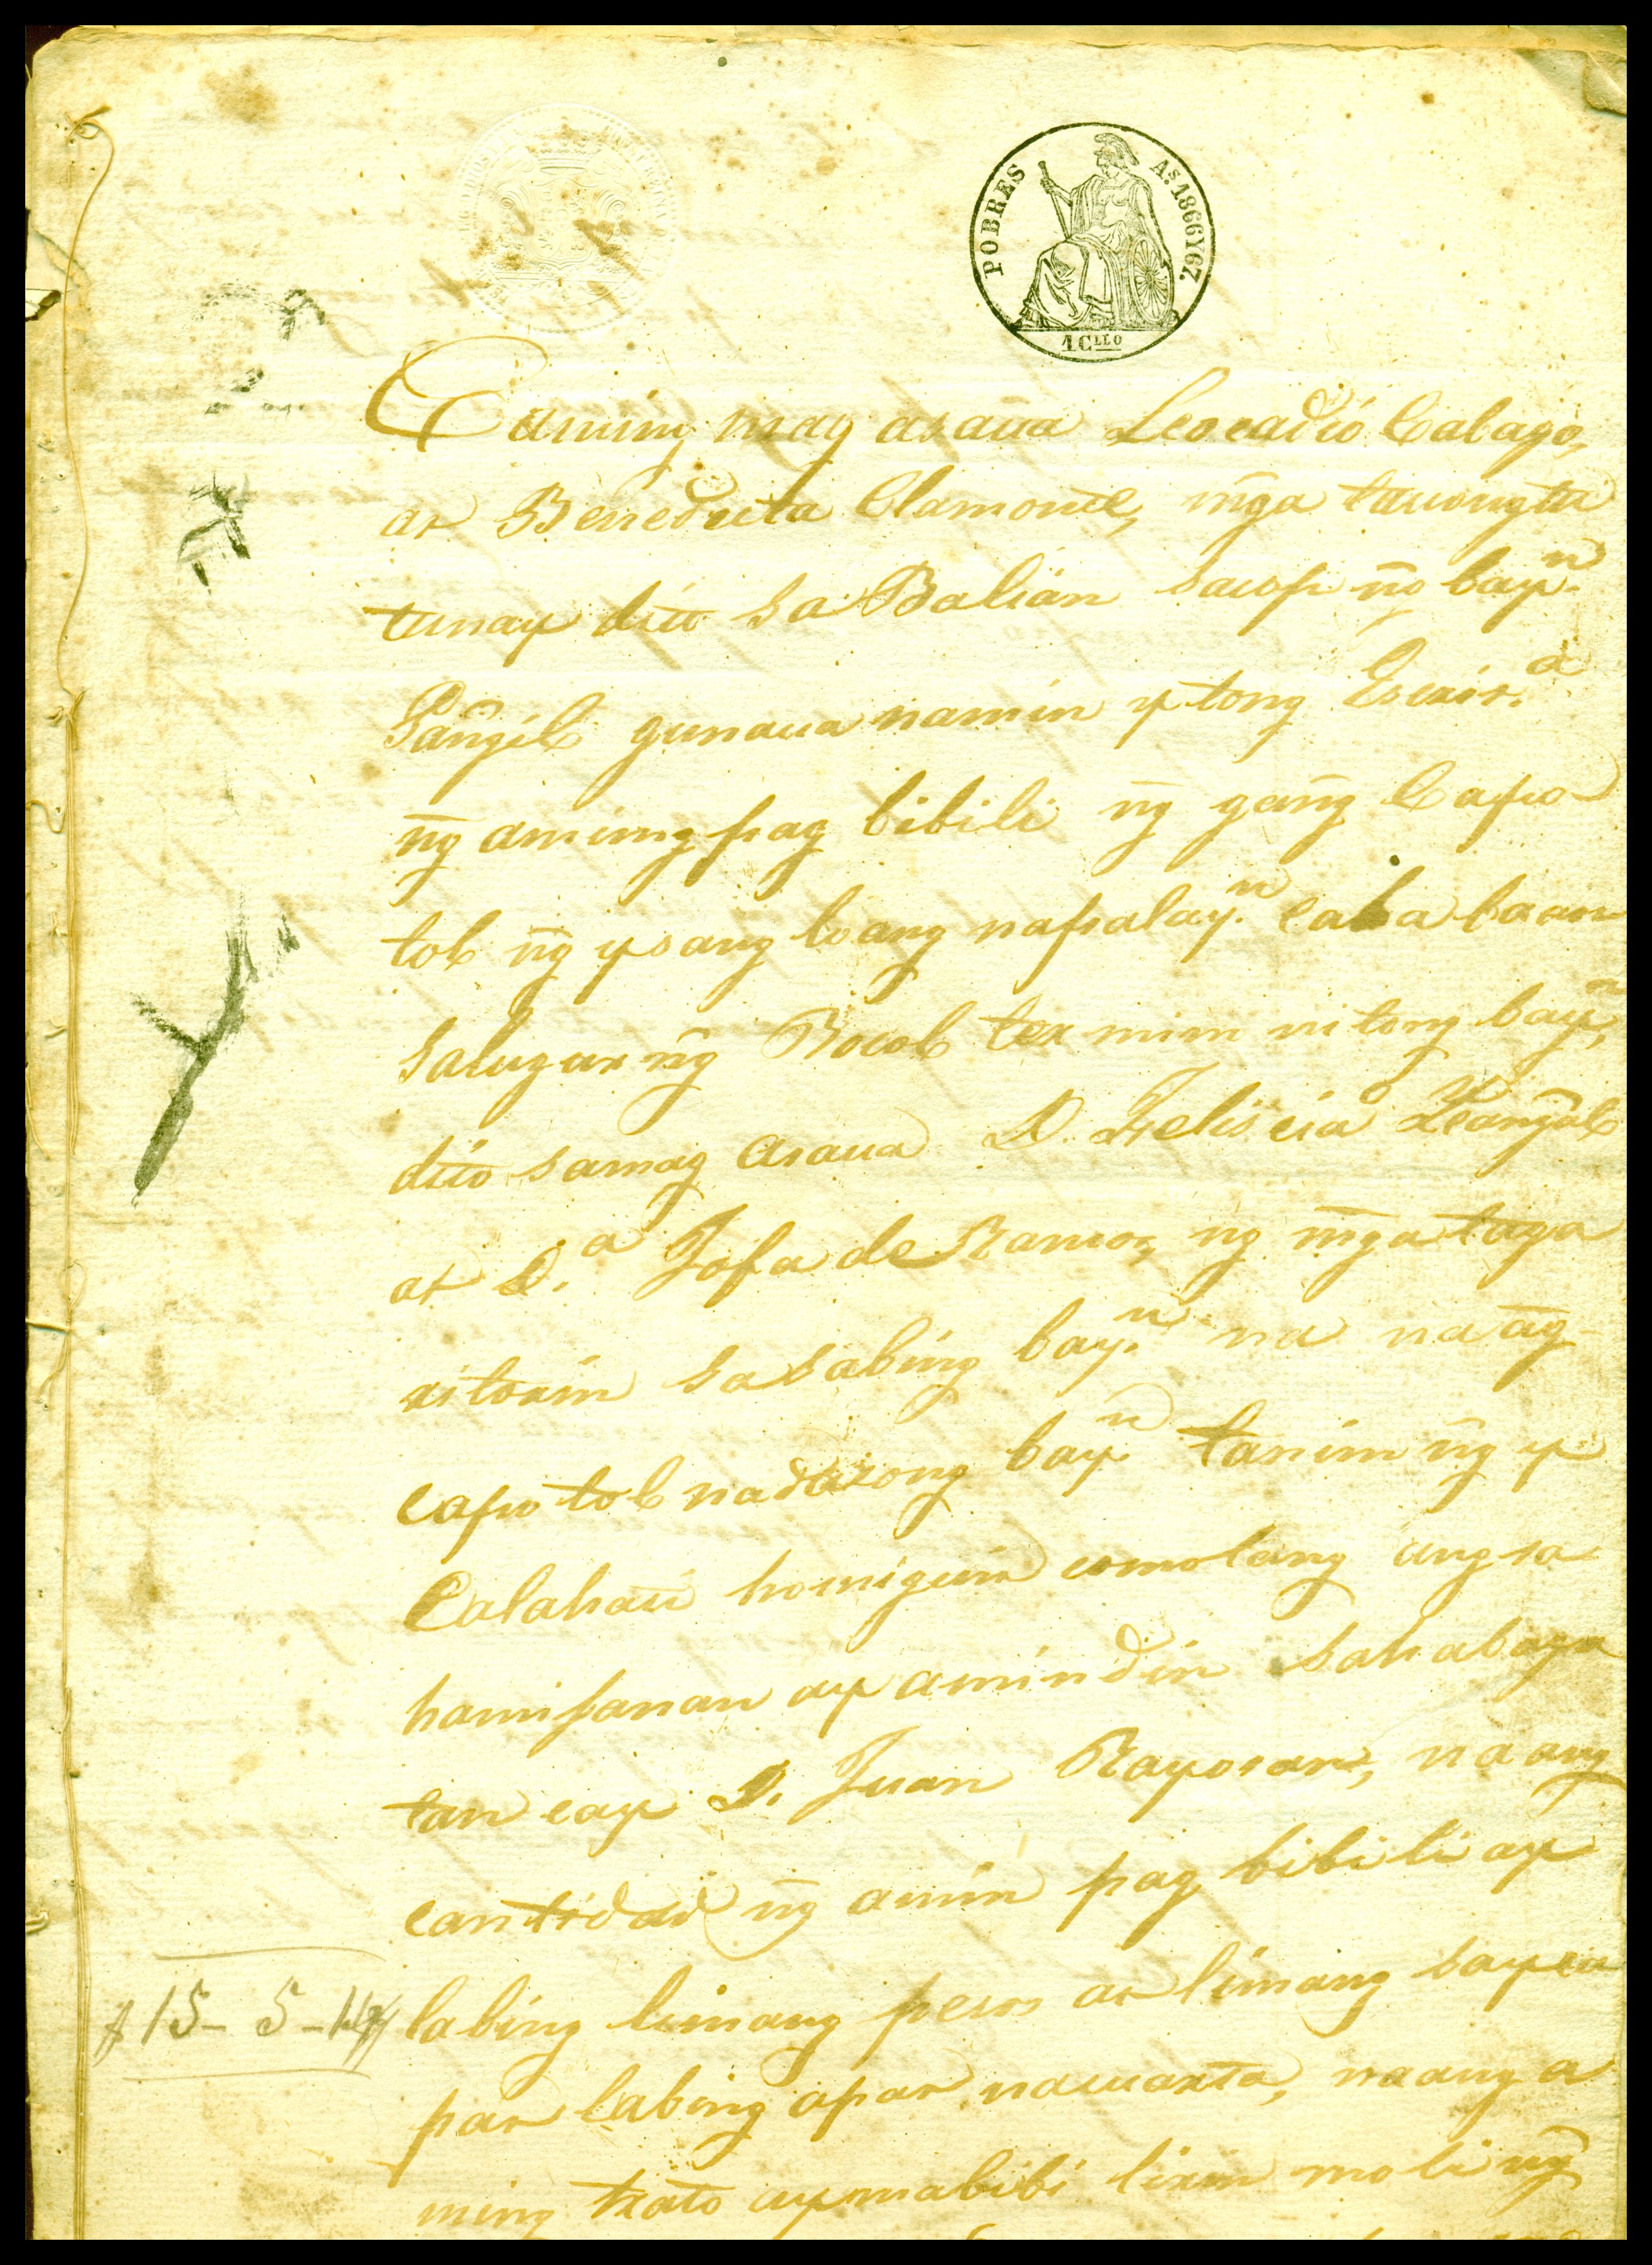 POBRES
A.s 1866 Y 67.
1 C.LLO
Caming mag asaua Leocadio Cabago,
at Benedicta Clamonte, mḡa tauong tu
tunay dito sa Balian sacop nḡ bay.n
Panḡil gunaua namin ytong Escrir.a
nḡ aming pag bibili nḡ ganḡ Capu
tol nḡ ysang loang napalay.n caba baan
salugar nḡ Bocol termim nitong bay.n
dito samag asaua D.
at D.a Jofa de Ramos, nḡ mḡa taga
ritorin sasabing bay.n na na aḡ
caputol nadatong bay.n tanim nḡ y
Calahati homiguin comolang ang sa
hamipanan ay amin din sahabaga
tan cay D. Juan Rayosan, na ang
cantidad nḡ amin pag bibili ay
$ 15 - 5 - 14
labing limang pesos at limang sayca
pat labing apat nacuarta, na ang a
ming trato ay mabibi lirin moli nḡ